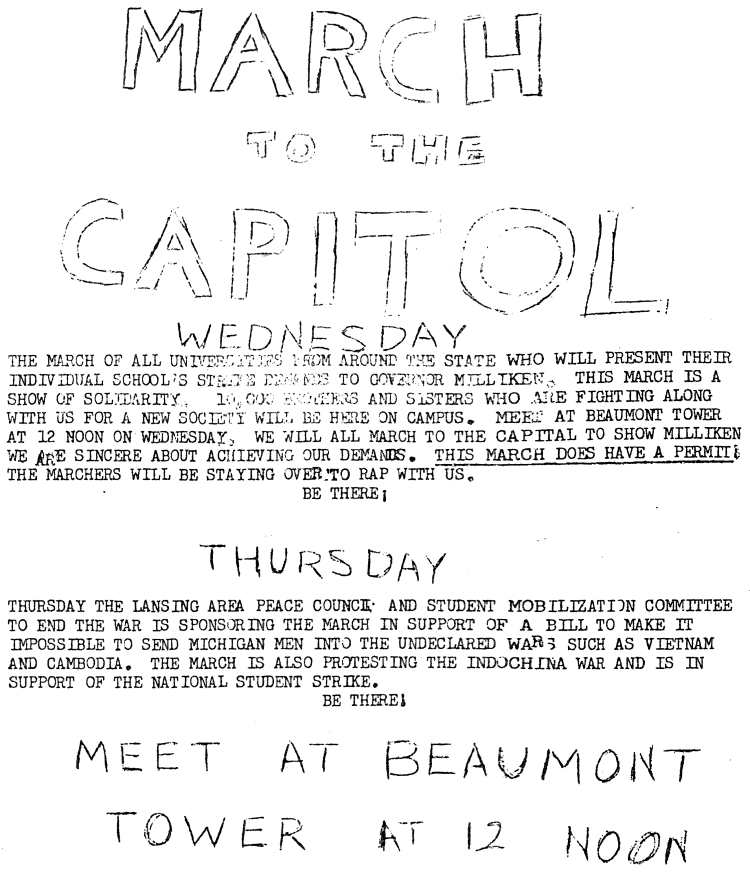 MARCH
TO THE
CAPITOL
WEDNESDAY
THE MARCH OF ALL UNIVERSITIES FROM AROUND THE STATE WHO WILL PRESENT THEIR
INDIVIDUAL SCHOOL'S STRIKE DEMANDS TO GOVERNOR MILLIKEN. THIS MARCH IS A
SHOW OF SOLIDARITY. 10,000 BROTHERS AND SISTERS WHO ARE FIGHTING ALONG
WITH US FOR A NEW SOCIETY WILL BE HERE ON CAMPUS. MEET AT BEAUMONT TOWER
AT 12 NOON ON WEDNESDAY. WE WILL ALL MARCH TO THE CAPITAL TO SHOW MILLIKEN
WE ARE SINCERE ABOUT ACHIEVING OUR DEMANDS. THIS MARCH DOES HAVE A PERMIT!
THE MARCHERS WILL BE STAYING OVER TO RAP WITH US.
BE THERE!
THURSDAY
THURSDAY THE LANSING AREA PEACE COUNCIL AND STUDENT MOBILIZATION COMMITTEE
TO END THE WAR IS SPONSORING THE MARCH IN SUPPORT OF A BILL TO MAKE IT
IMPOSSIBLE TO SEND MICHIGAN MEN INTO THE UNDECLARED WARS SUCH AS VIETNAM
AND CAMBODIA. THE MARCH IS ALSO PROTESTING THE INDOCHINA WAR AND IS IN
SUPPORT OF THE NATIONAL STUDENT STRIKE.
BE THERE!
MEET AT BEAUMONT
TOWER AT 12 NOON